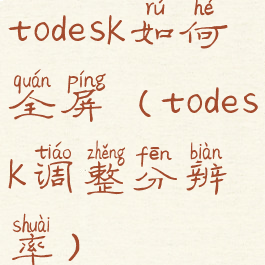 rú hé
todesk如何
quán píng
全屏（todes
tiáo zhěng fēn biàn
k调整分辨
shuài
率）